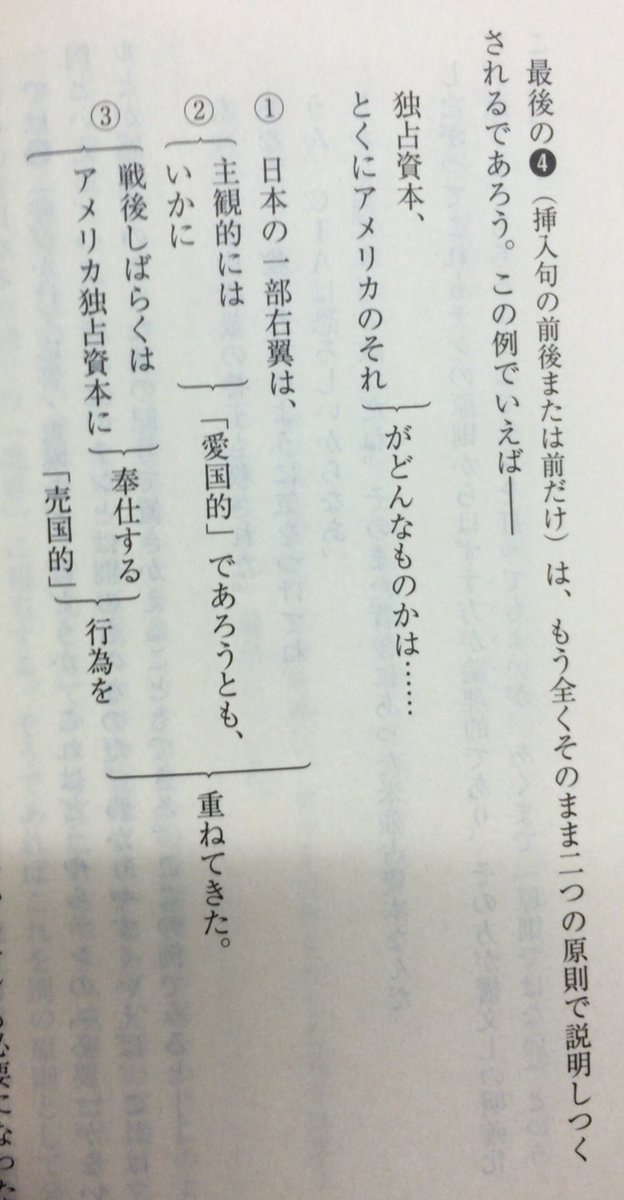 最後の❹（挿入句の前後または前だけ）は、もう全くそのまま二つの原則で説明しつく
されるであろう。この例でいえば――
独占資本、
とくにアメリカのそれ
がどんなものかは……
① 日本の一部右翼は、
② 主観的には
いかに
「愛国的」であろうとも、
③ 戦後しばらくは
アメリカ独占資本に
奉仕する
「売国的」
行為を
重ねてきた。
も必要になった